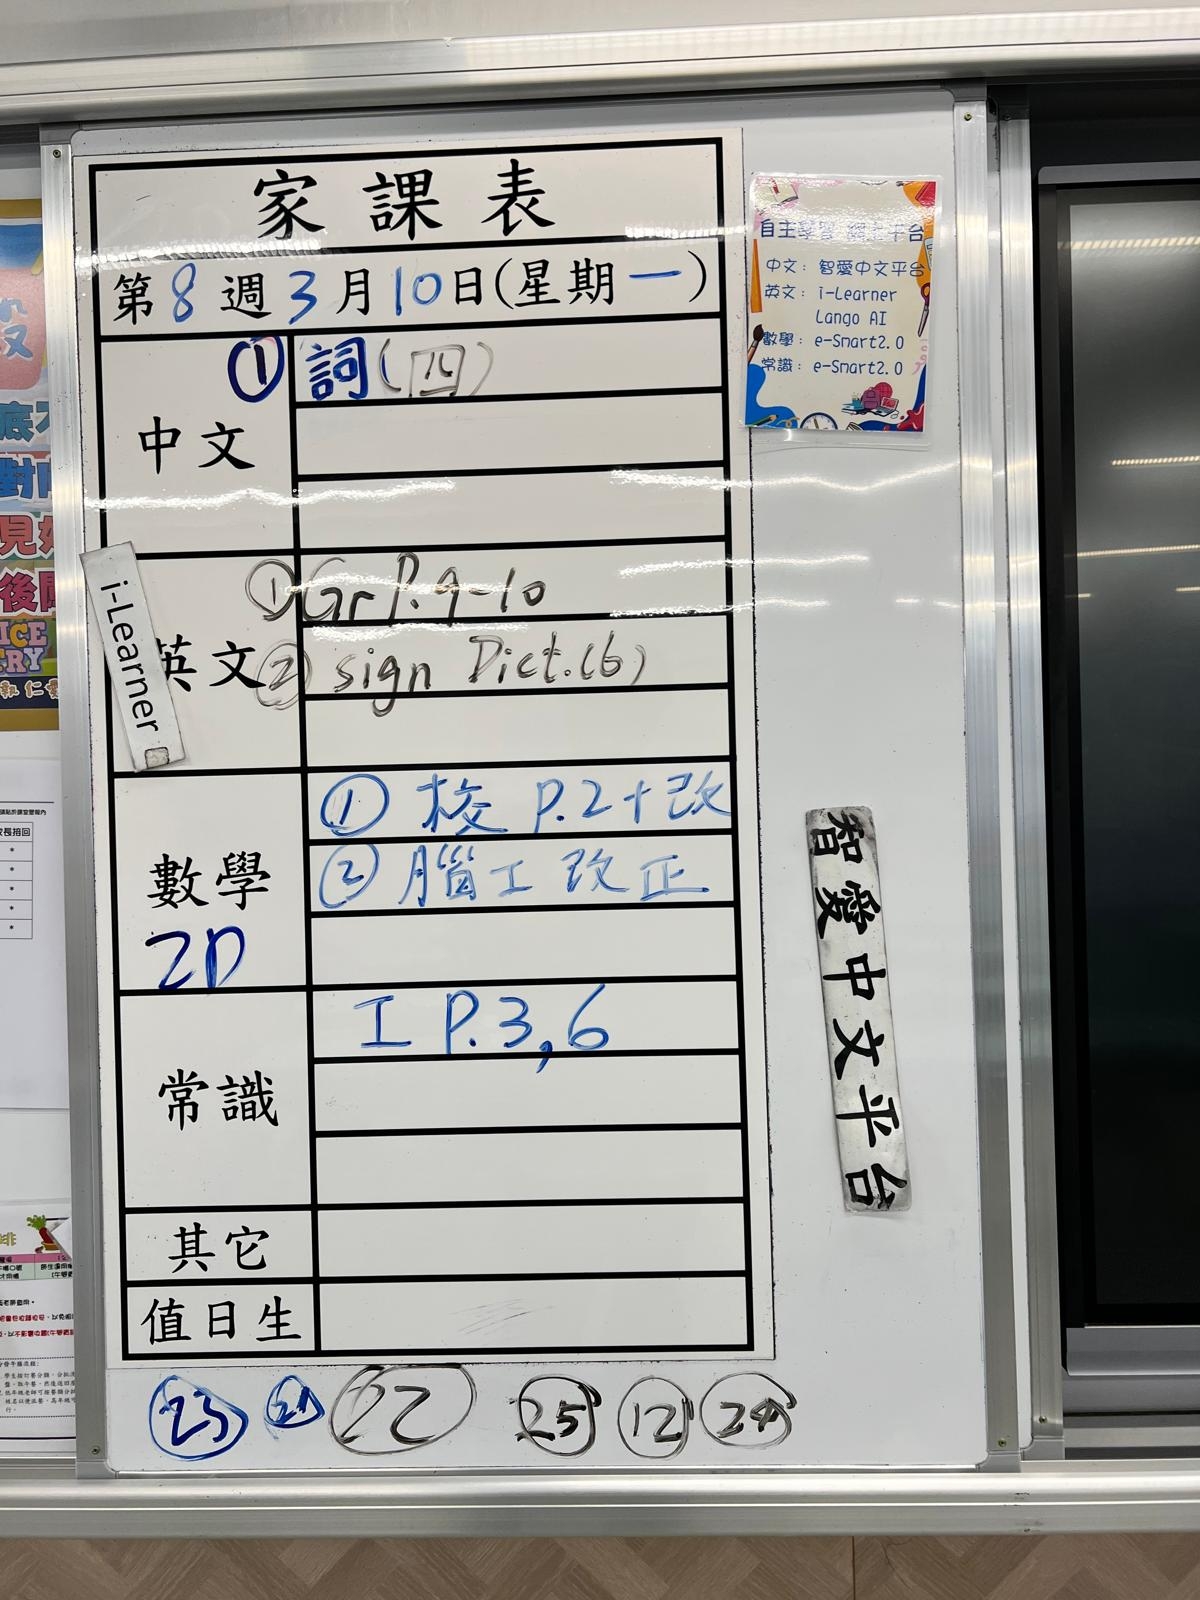 家課表
第8週3月10日(星期一)
中文
① 詞(四)
英文
i-Learner
① Gr P.9-10
② sign Dict.(6)
數學
2D
① 校 P.2+改
② 腦工改正
常識
工 P.3,6
其它
值日生
23 21 22 25 12 24
自主學習 網上平台
中文：智愛中文平台
英文：i-Learner
Lango AI
數學：e-Smart2.0
常識：e-Smart2.0
智愛中文平台